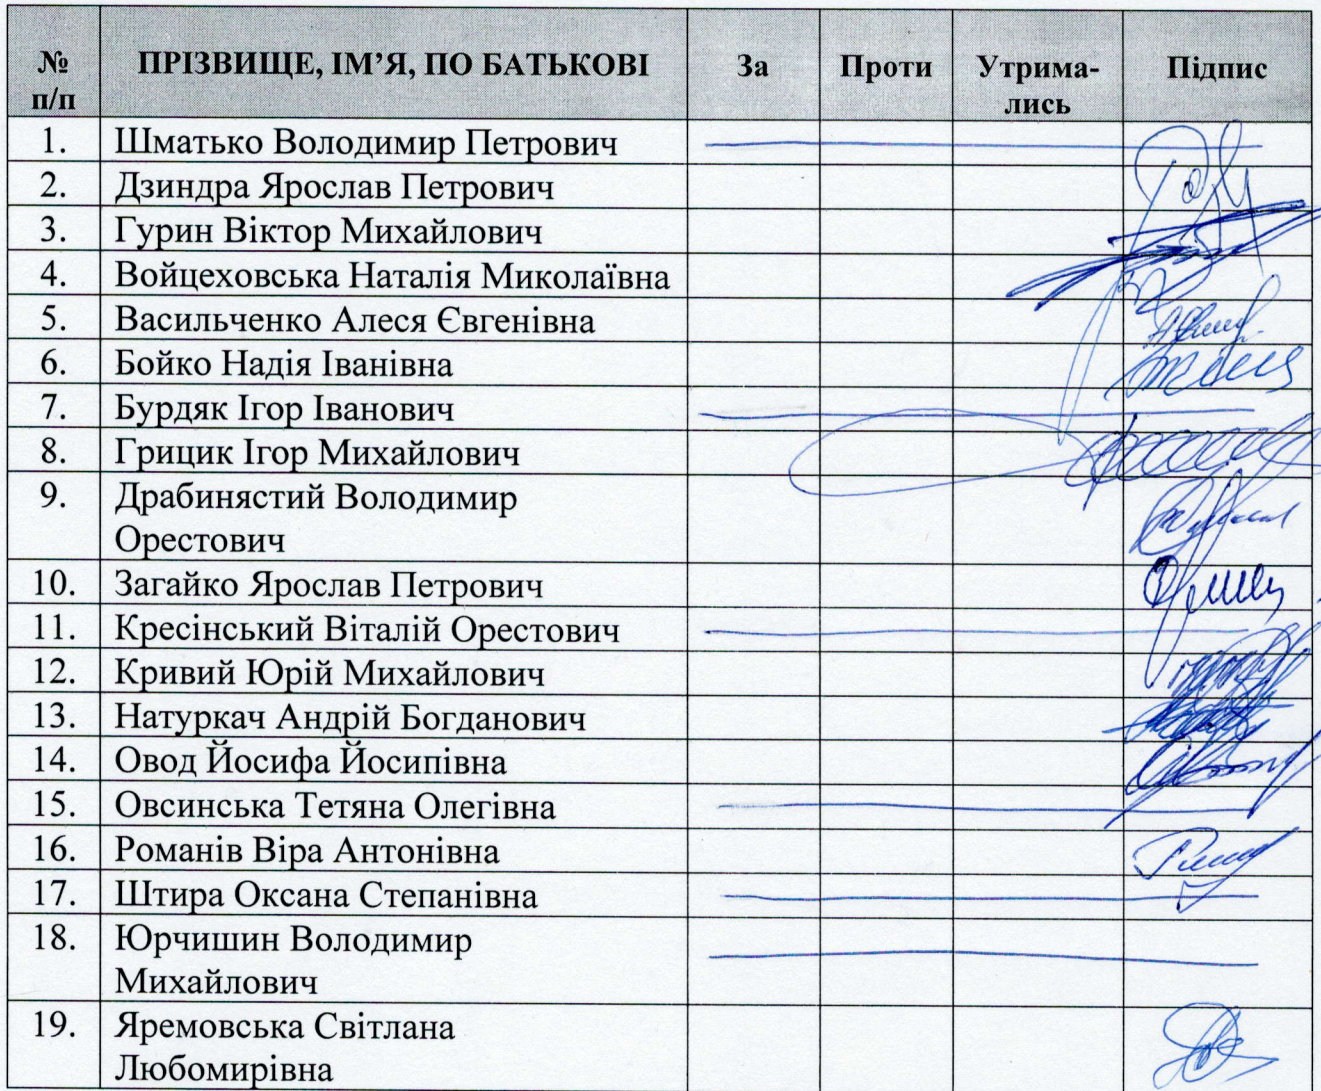 № п/п ПРІЗВИЩЕ, ІМ’Я, ПО БАТЬКОВІ За Проти Утрима-лись Підпис
1. Шматько Володимир Петрович
2. Дзиндра Ярослав Петрович
3. Гурин Віктор Михайлович
4. Войцеховська Наталія Миколаївна
5. Васильченко Алеся Євгенівна
6. Бойко Надія Іванівна
7. Бурдяк Ігор Іванович
8. Грицик Ігор Михайлович
9. Драбинястий Володимир
Орестович
10. Загайко Ярослав Петрович
11. Кресінський Віталій Орестович
12. Кривий Юрій Михайлович
13. Натуркач Андрій Богданович
14. Овод Йосифа Йосипівна
15. Овсинська Тетяна Олегівна
16. Романів Віра Антонівна
17. Штира Оксана Степанівна
18. Юрчишин Володимир
Михайлович
19. Яремовська Світлана
Любомирівна